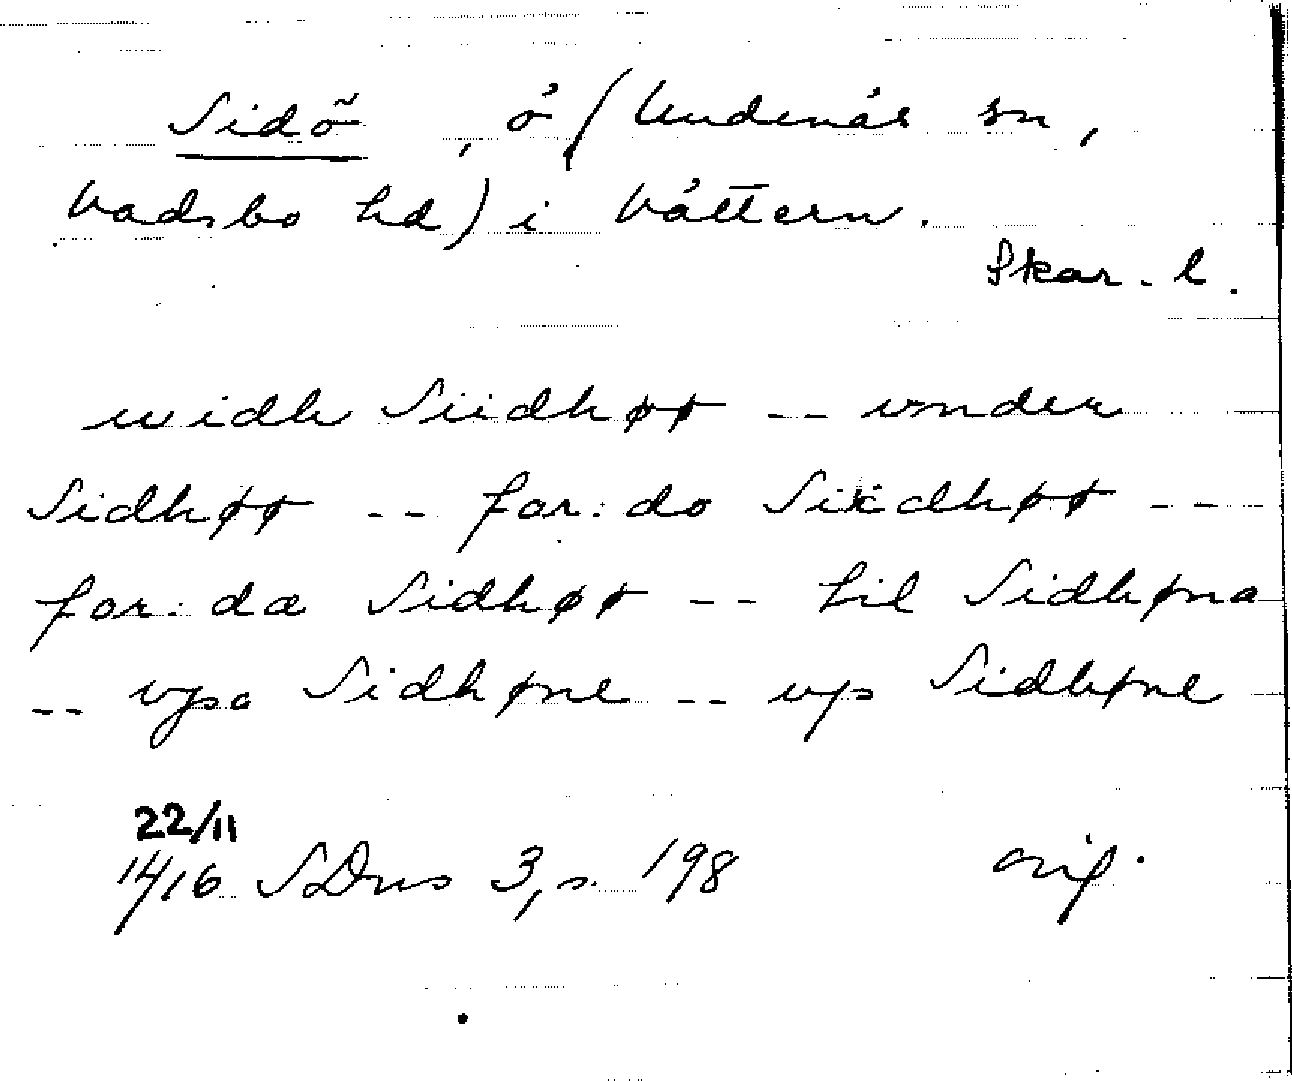 Sidö, ö (Undenäs sn,
Vadsbo hd) i Vättern.
Skar. l.
widh Siidhøø -- vnder
Sidhøø -- for:do Siidhøø ---
for:da Sidhøø -- til Sidhøna
-- vpa Sidhøne -- vp Sidhøne
22/11
1416 SDns 3, s. 198 orig.